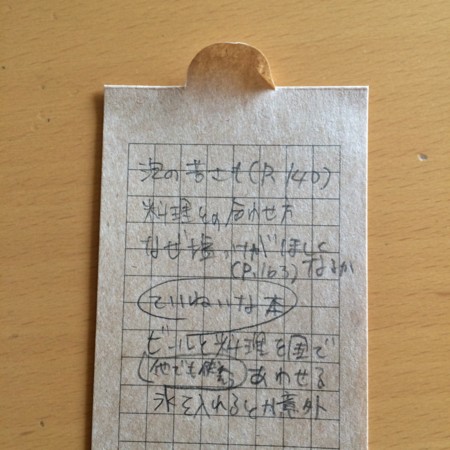 泡の苦さも(P.140)
料理との合わせ方
なぜ塩 がほしく
(P.163) なるか
ていねいな本
ビールと料理を国で
他でも使える あわせる
氷を入れるとか意外